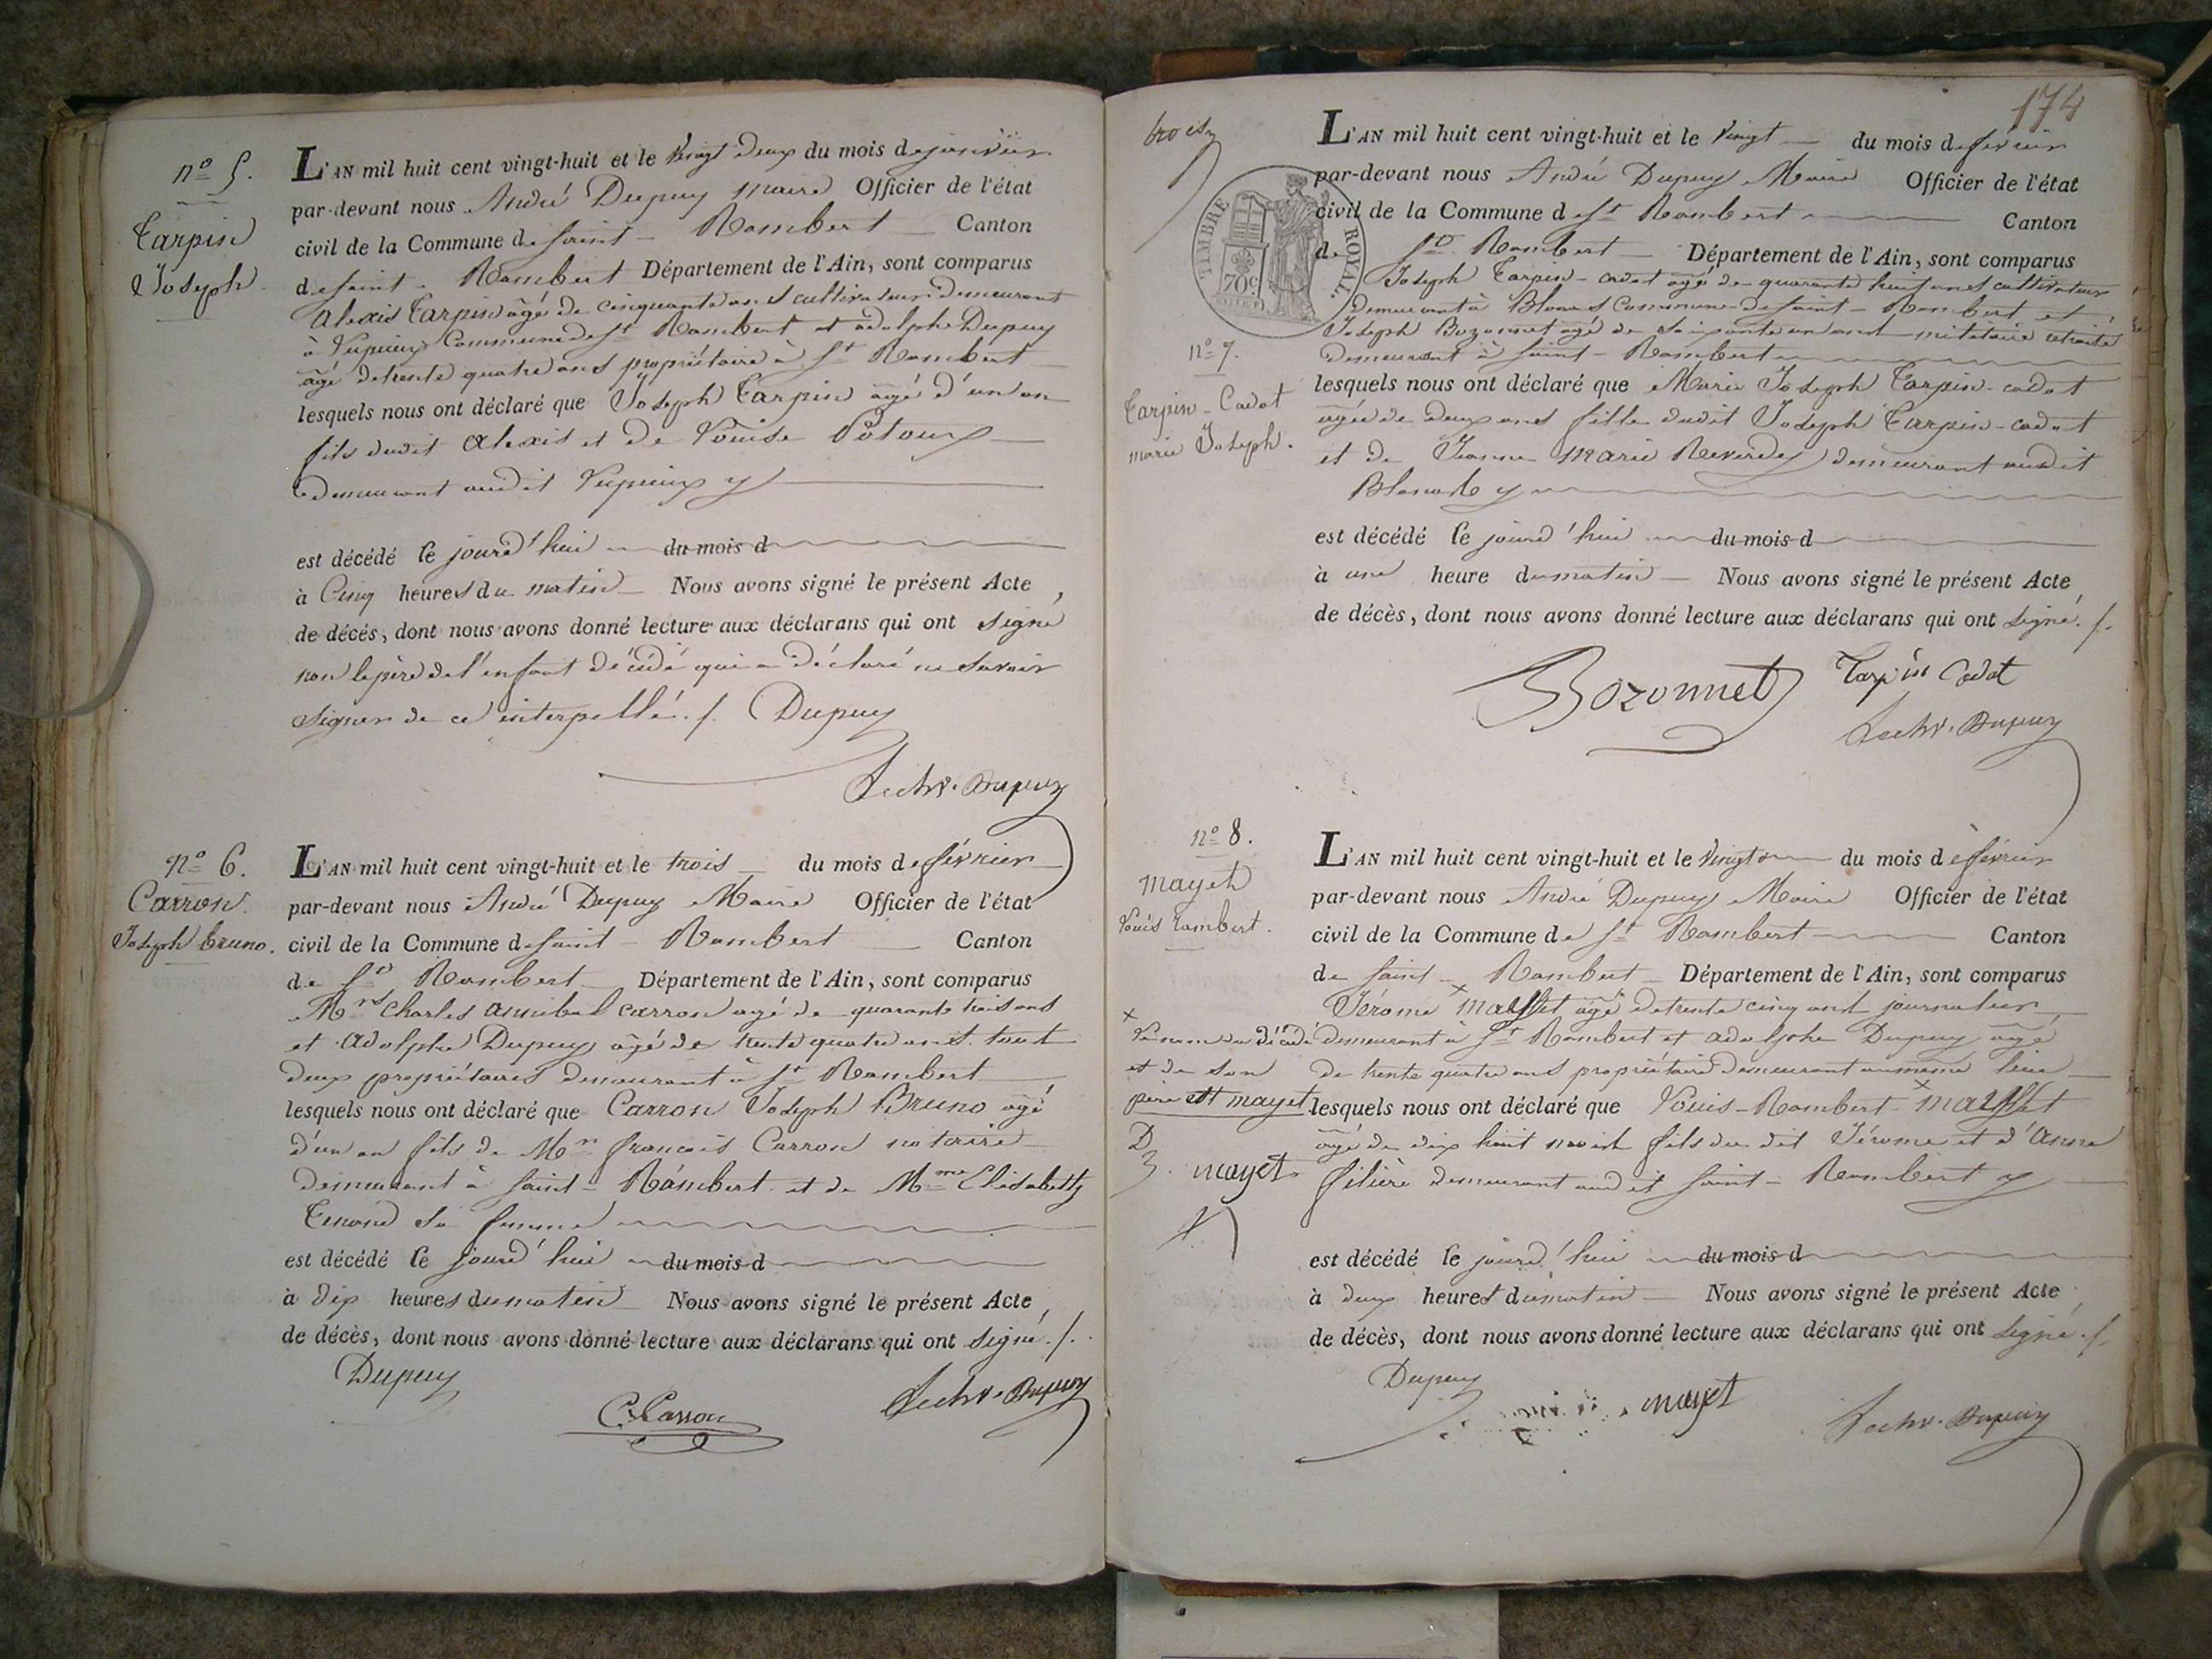 n° 5.
Tarpin
Joseph.
L'AN mil huit cent vingt-huit et le vingt deux du mois de janvier
par-devant nous André Dupuy maire Officier de l'état
civil de la Commune de saint - Rambert Canton
de saint - Rambert Département de l'Ain, sont comparus
alexis Tarpin âgé de cinquante ans cultivateur demeurant
à Commune de St Rambert et adolphe Dupuy
âgé de trente quatre ans propriétaire à St Rambert
lesquels nous ont déclaré que Joseph Tarpin âgé d'un an
fils dudit alexis et de Louise
demeurant audit
est décédé le jourd'hui du mois d
à Cinq heures du matin Nous avons signé le présent Acte,
de décés, dont nous avons donné lecture aux déclarans qui ont signé
non le père de l'enfant décédé qui a déclaré ne savoir
signer de ce interpellé ./. Dupuy
Dupuy
n° 6.
Carron
Joseph bruno.
L'AN mil huit cent vingt-huit et le trois du mois de février
par-devant nous André Dupuy Maire Officier de l'état
civil de la Commune de saint - Rambert Canton
de St Rambert Département de l'Ain, sont comparus
Mrs Charles annibal carron âgé de quarante trois ans
et Adolphe Dupuy âgé de trente quatre ans tout
deux propriétaires demeurant à St Rambert
lesquels nous ont déclaré que Carron Joseph Bruno âgé
d'un an fils de Mr françois Carron notaire
demeurant à saint - Rambert et de Mme Elisabeth
sa femme
est décédé le jourd'hui du mois d
à dix heures du matin Nous avons signé le présent Acte,
de décès, dont nous avons donné lecture aux déclarans qui ont signé ./.
Dupuy
C. Carron
Dupuy
174
trois
TIMBRE ROYAL.
70c
n° 7.
Tarpin - Cadet
marie Joseph.
L'AN mil huit cent vingt-huit et le vingt du mois de février
par-devant nous André Dupuy Maire Officier de l'état
civil de la Commune de St Rambert Canton
de St Rambert Département de l'Ain, sont comparus
Joseph Tarpin - cadet âgé de quarante huit ans cultivateur
demeurant à Blanas Commune de saint - Rambert et
Joseph Bozonnet âgé de soixante un ans militaire retraité
demeurant à saint - Rambert
lesquels nous ont déclaré que Marie Joseph Tarpin - cadet
agée de deux ans fille dudit Joseph Tarpin - cadet
et de Jeanne Marie Reverdy demeurant audit
est décédé le jourd'hui du mois d
à une heure du matin Nous avons signé le présent Acte,
de décès, dont nous avons donné lecture aux déclarans qui ont signé ./.
Bozonnet Tarpin Cadet
Dupuy
n° 8.
mayet
Louis rambert.
L'AN mil huit cent vingt-huit et le vingt du mois de février
par-devant nous André Dupuy Maire Officier de l'état
civil de la Commune de St Rambert Canton
de saint - Rambert Département de l'Ain, sont comparus
Jérome âgé de trente cinq ans journalier,
demeurant à St Rambert et adolphe Dupuy âgé
de trente quatre ans propriétaire demeurant au même lieu
lesquels nous ont déclaré que Louis - Rambert
âgé de dix huit mois fils du dit Jérome et d'Anne
filière demeurant audit saint - Rambert
x
Le nom du décédé
et de son
père est mayet
D
mayet
est décédé le jourd'hui du mois d
à deux heures du matin Nous avons signé le présent Acte,
de décès, dont nous avons donné lecture aux déclarans qui ont signé ./.
Dupuy
mayet
Dupuy